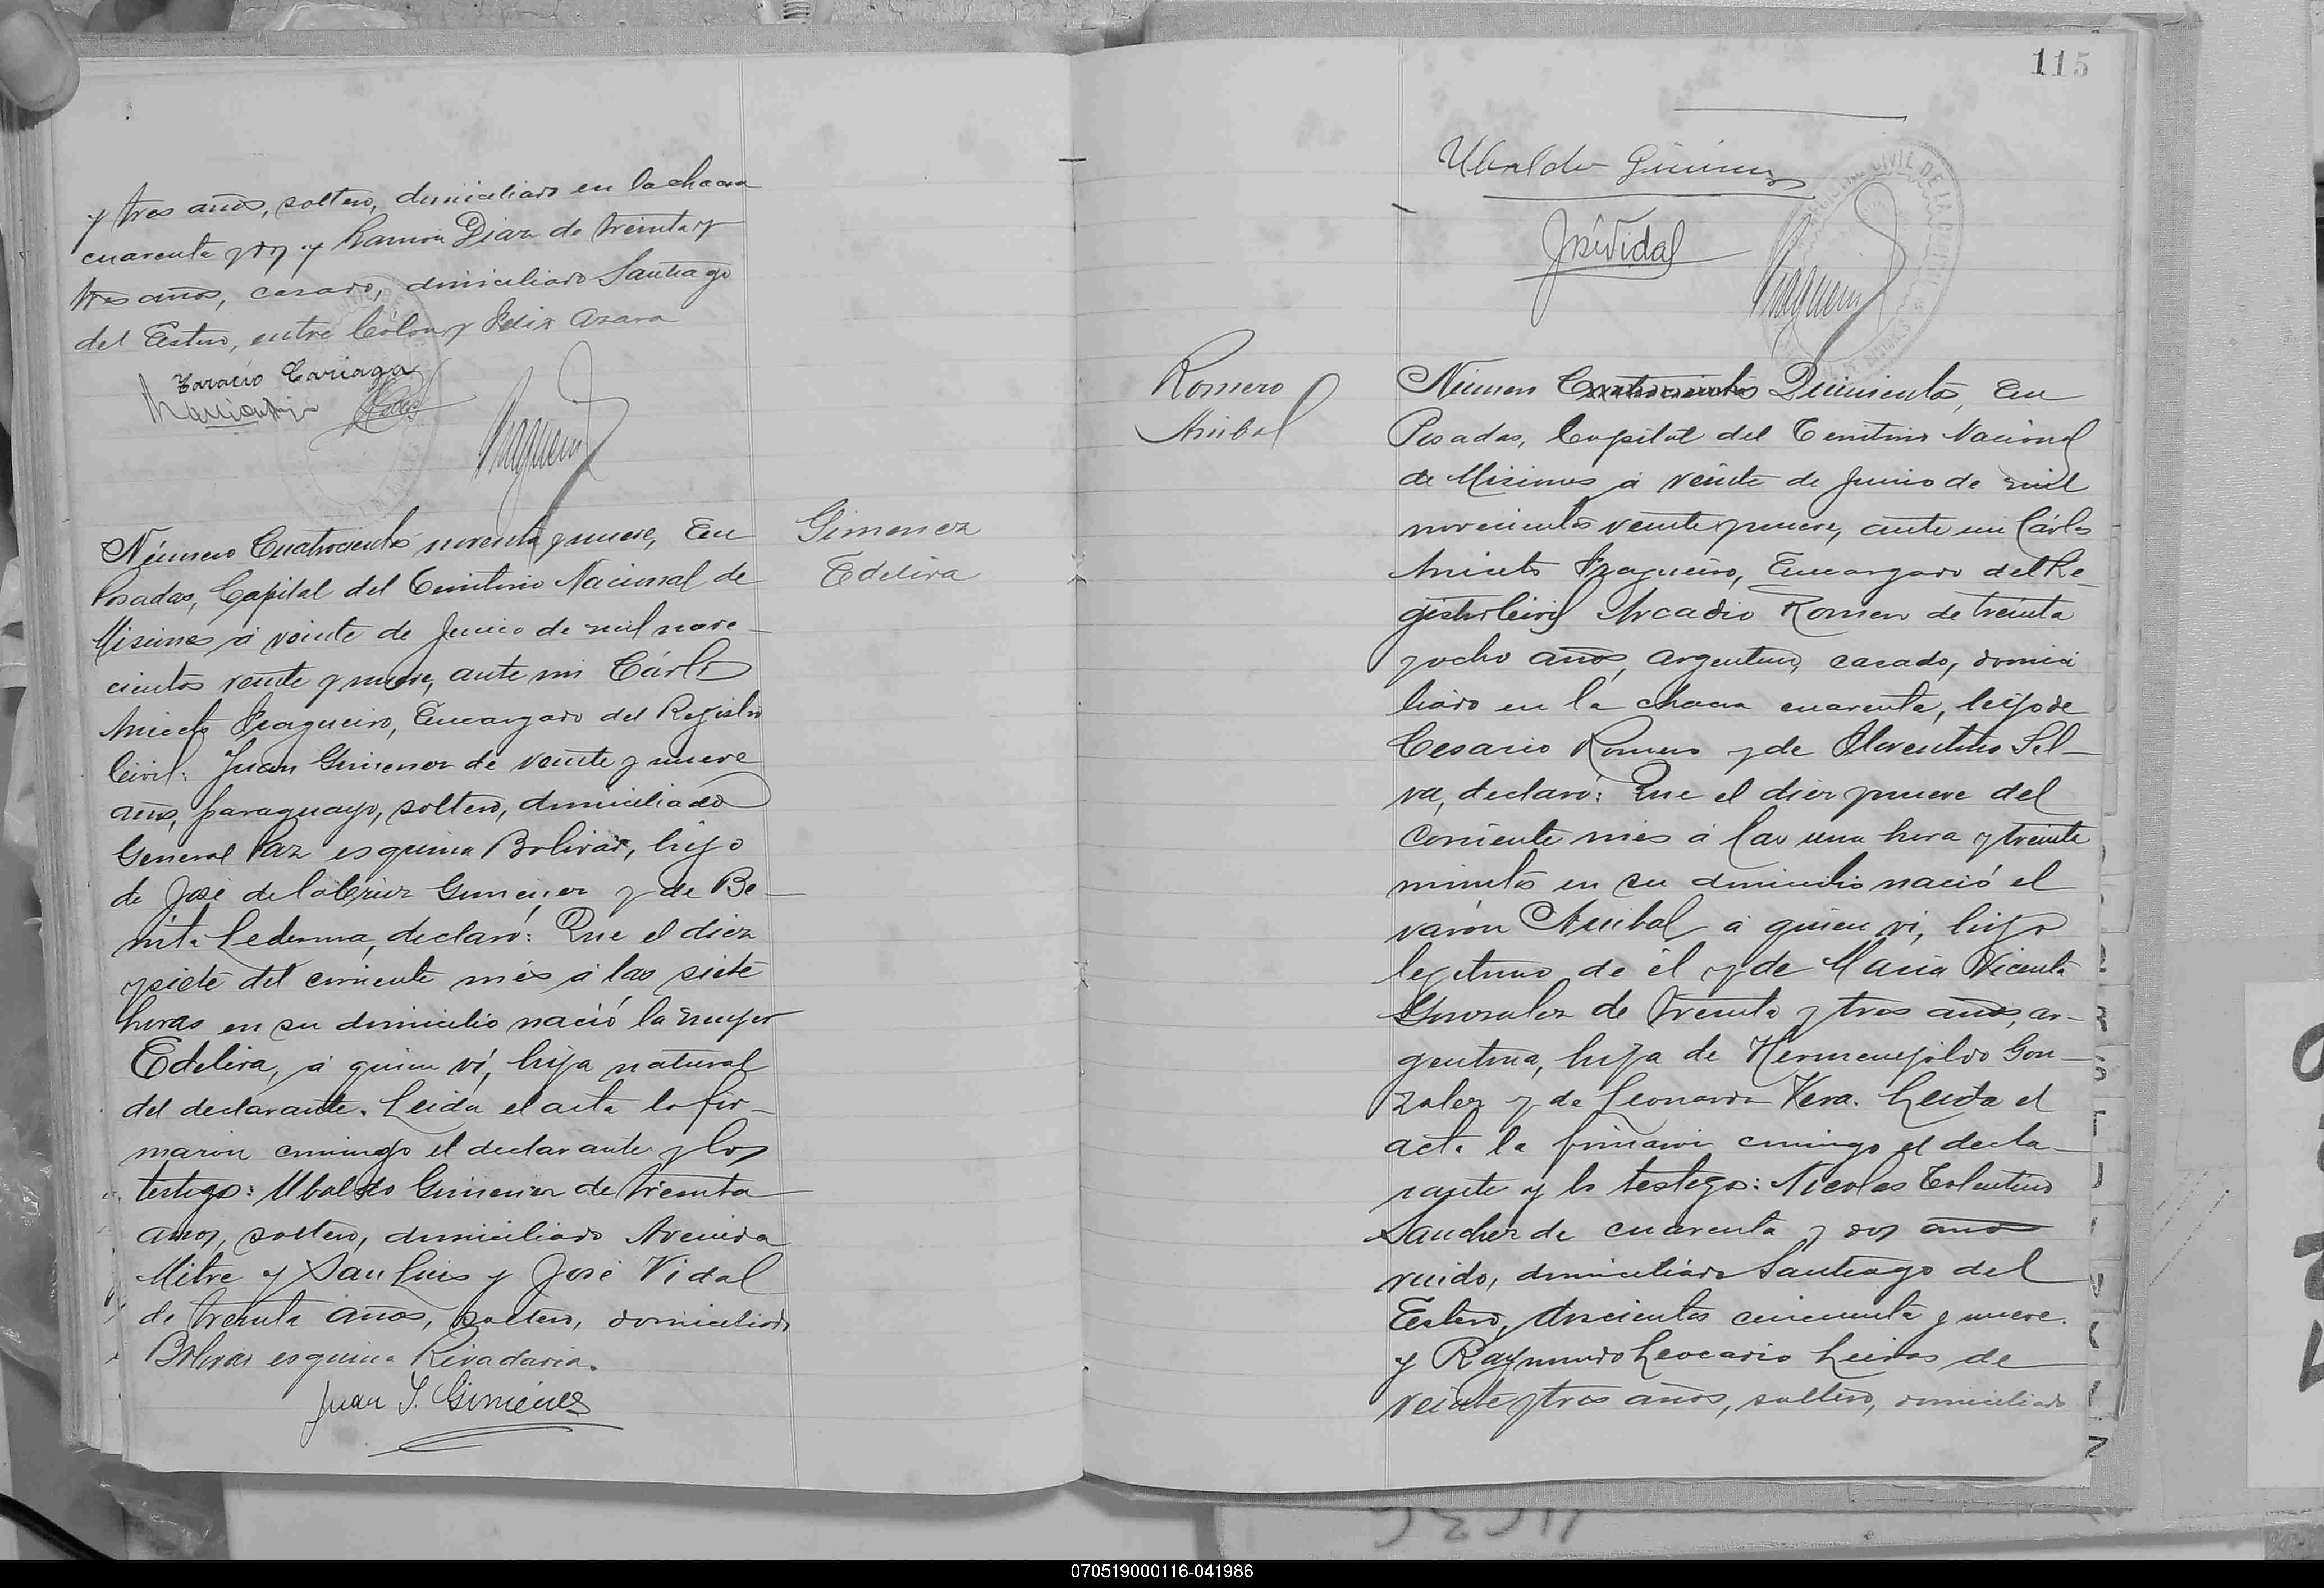 y tres años, soltero, domiciliado en la chacra
cuarenta y dos y Ramon Diaz de treinta y
tres años, casado, domiciliado Santiago
del Estero, entre Cólon y Felix Azara
Taracio Cariaga
Número Cuatrocientos noventa y nueve, En
Posadas, Capital del Territorio Nacional de
Misiones á veinte de Junio de mil nove-
cientos veinte y nueve, ante mi Cárlos
Aniceto Fragueiro, Encargado del Registro
Civil: Juan Gimenez de veinte y nueve
años, paraguayo, soltero, domiciliado
General Paz esquina Bolivar, hijo
de José de la Cruz Gimenez y de Be-
nita Ledesma, declaró: Que el diez
y siete del corriente més á las siete
horas en su domicilio nació la mujer
Edelira, á quien ví, hija natural
del declarante. Leida el acta la fir-
maron conmigo el declarante y los
testigos: Ubaldo Gimenez de treinta
años, soltero, domiciliado Avenida
Mitre y San Luis y José Vidal
de treinta años, soltero, domiciliado
Bolivar esquina Rivadavia.
Juan S. Gimenez
Gimenez
Edelira
115
Ubaldo Gimenez
José Vidal
Romero
Anibal
Número Cuatrocientos Quinientos, En
Posadas, Capital del Territorio Nacional
de Misiones á veinte de Junio de mil
novecientos veinte y nueve, ante mi Cárlos
Aniceto Fragueiro, Encargado del Re-
gistro Civil Arcadio Romero de treinta
y ocho años, argentino, casado, domici
liado en la chacra cuarenta, hijo de
Cesario Romero y de Florentina Sil-
va, declaró: Que el diez y nueve del
corriente més á las una hora y treinta
minutos en su domicilio nació el
varón Anibal á quien ví, hijo
legitimo de él y de Maria Vicenta
Gonzalez de treinta y tres años, ar-
gentina, hija de Hermenejildo Gon-
zalez y de Leonarda Vera. Leida el
acta la firmaron conmigo el decla-
rante y los testigos: Nicolas Tolentino
Sanchez de cuarenta y dos años
viudo, domiciliado Santiago del
Estero, doscientos cincuenta y nueve.
y Raymundo Leocadio Leivas de
veinte y tres años, soltero, domiciliado
070519000116-041986